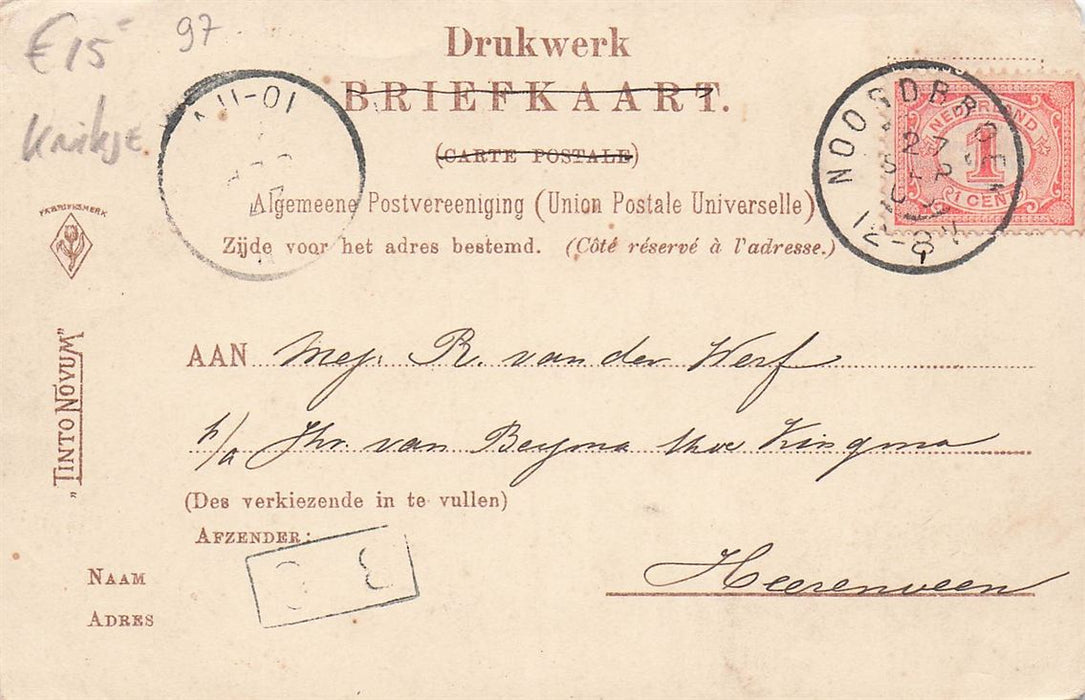 €15 97
Knikje
Drukwerk
BRIEFKAART.
(CARTE POSTALE)
Algemeene Postvereeniging (Union Postale Universelle)
Zijde voor het adres bestemd. (Côté réservé à l'adresse.)
10-11
NEDERLAND
1
1 CENT
27
SEP
12-8V
FABRIEKSMERK
"TINTO NOVUM"
AAN Mej. R. van der Werf
p/a Jhr. van Beyma thoe Kingma
(Des verkiezende in te vullen)
AFZENDER:
Heerenveen
NAAM
ADRES